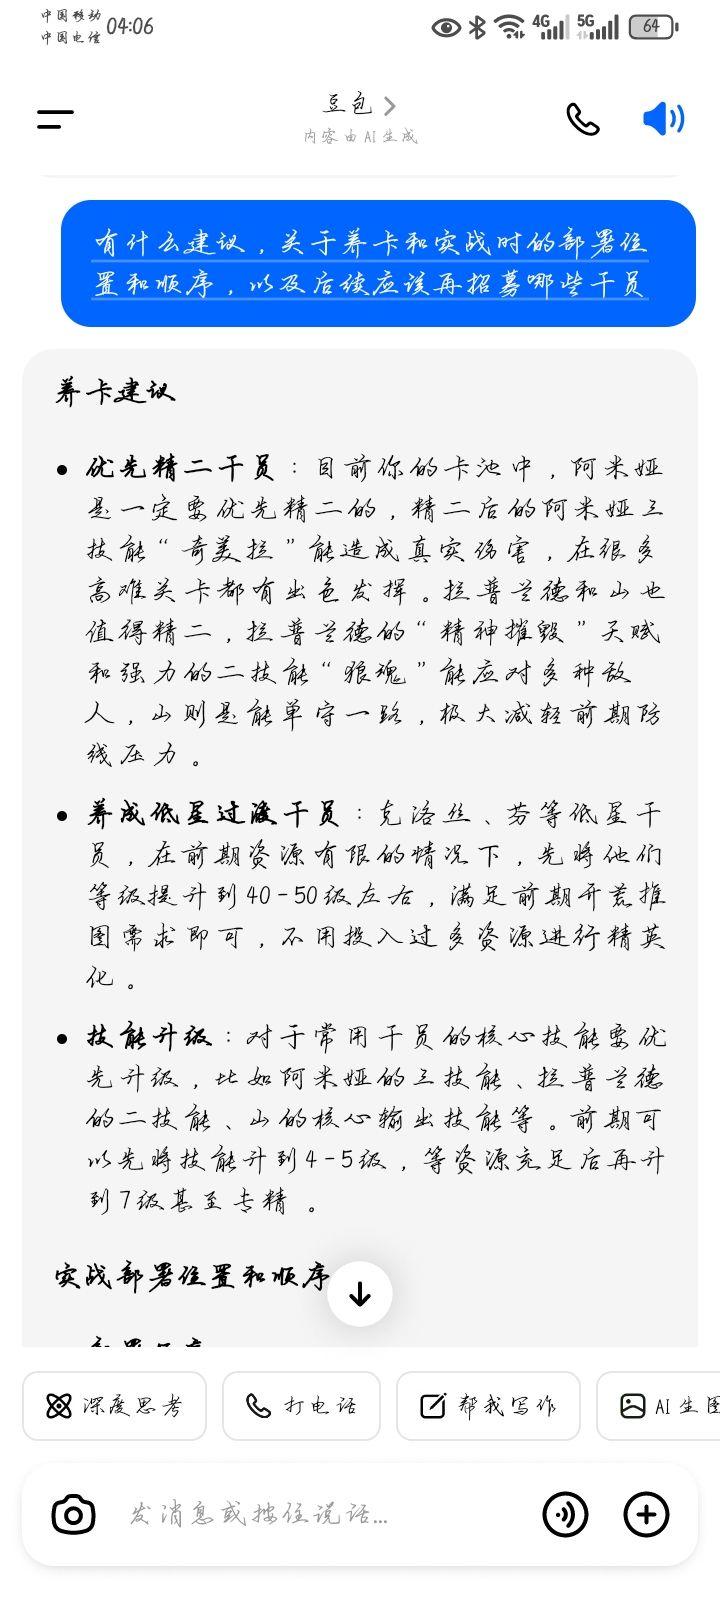 中国移动
中国电信
04:06
4G
5G
64
豆包
内容由AI生成
有什么建议，关于养卡和实战时的部署位
置和顺序，以及后续应该再招募哪些干员
养卡建议
• 优先精二干员：目前你的卡池中，阿米娅
是一定要优先精二的，精二后的阿米娅三
技能“奇美拉”能造成真实伤害，在很多
高难关卡都有出色发挥。拉普兰德和山也
值得精二，拉普兰德的“精神摧毁”天赋
和强力的二技能“狼魂”能应对多种敌
人，山则是能单守一路，极大减轻前期防
线压力。
• 养成低星过渡干员：克洛丝、芬等低星干
员，在前期资源有限的情况下，先将他们
等级提升到40-50级左右，满足前期开荒推
图需求即可，不用投入过多资源进行精英
化。
• 技能升级：对于常用干员的核心技能要优
先升级，比如阿米娅的三技能、拉普兰德
的二技能、山的核心输出技能等。前期可
以先将技能升到4-5级，等资源充足后再升
到7级甚至专精。
实战部署位置和顺序
深度思考
打电话
帮我写作
AI生图
发消息或按住说话...